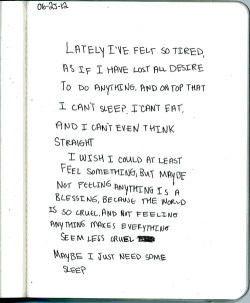 06-25-12
LATELY I'VE FELT SO TIRED,
AS IF I HAVE LOST ALL DESIRE
TO DO ANYTHING, AND ON TOP THAT
I CAN'T SLEEP, I CAN'T EAT,
AND I CAN'T EVEN THINK
STRAIGHT
I WISH I COULD AT LEAST
FEEL SOMETHING, BUT MAYBE
NOT FEELING ANYTHING IS A
BLESSING, BECAUSE THE WORLD
IS SO CRUEL, AND NOT FEELING
ANYTHING MAKES EVERYTHING
SEEM LESS CRUEL
MAYBE I JUST NEED SOME
SLEEP